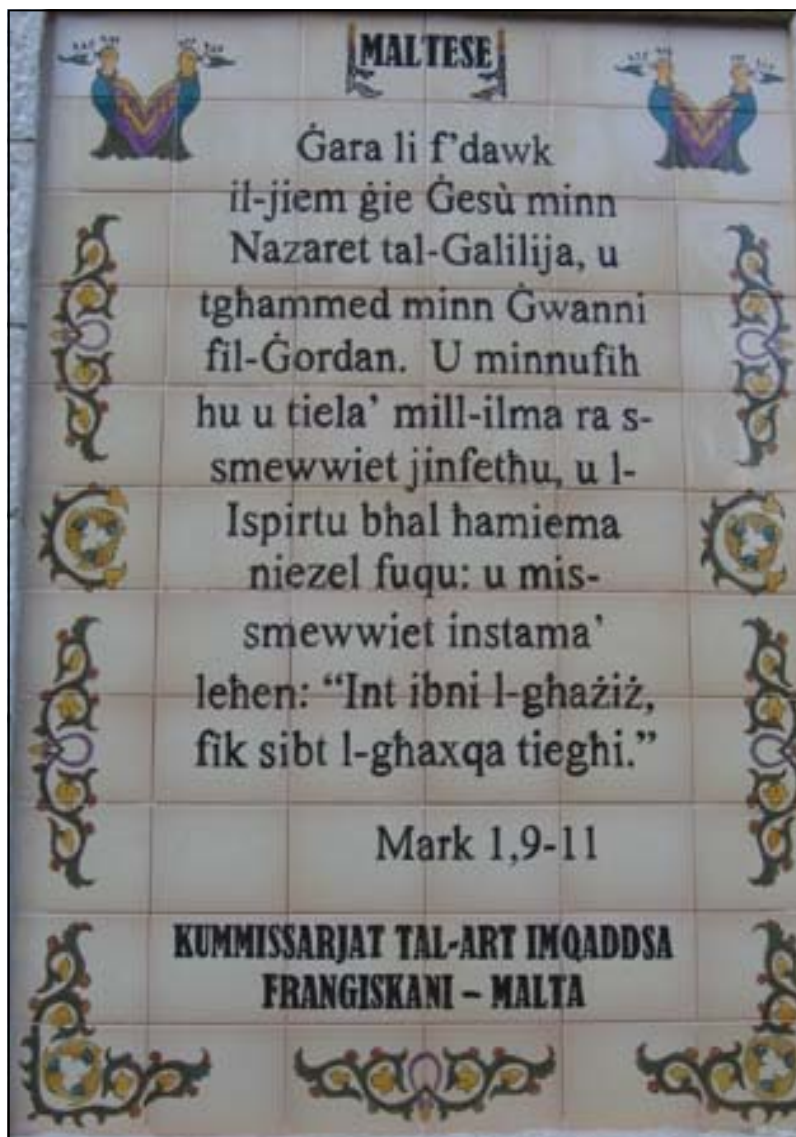 MALTESE
Ġara li f'dawk
il-jiem ġie Ġesù minn
Nazaret tal-Galilija, u
tgħammed minn Ġwanni
fil-Ġordan. U minnufih
hu u tiela' mill-ilma ra s-
smewwiet jinfetħu, u l-
Ispirtu bħal ħamiema
niezel fuqu: u mis-
smewwiet instama'
leħen: “Int ibni l-għażiż,
fik sibt l-għaxqa tiegħi.”
Mark 1,9-11
KUMMISSARJAT TAL-ART IMQADDSA
FRANGISKANI – MALTA